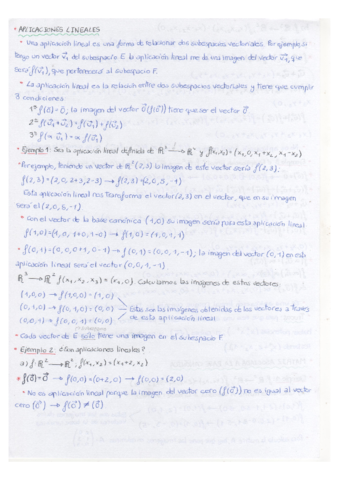 • APLICACIONES LINEALES
• Una aplicación lineal es una forma de relacionar dos subespacios vectoriales. Por ejemplo si
tengo un vector v⃗₁ del subespacio E la aplicación lineal me da una imagen del vector v⃗₁, que
será f(v⃗₁), que pertenecerá al subespacio F.
• La aplicación lineal es la relación entre dos subespacios vectoriales y tiene que cumplir
3 condiciones
1ª f(0⃗) = 0⃗, la imagen del vector 0⃗ (f(0⃗)) tiene que ser el vector 0⃗
2ª f(v⃗₁+v⃗₂) = f(v⃗₁) + f(v⃗₂)
3ª f(α v⃗₁) = α f(v⃗₁)
• Ejemplo 1: Sea la aplicación lineal definida de ℝ² → ℝ⁴ y f(x₁,x₂) = (x₁, 0, x₁+x₂, x₁-x₂)
• Por ejemplo, teniendo un vector de ℝ² (2,3) la imagen de este vector sería f(2,3).
f(2,3) = (2, 0, 2+3, 2-3) → f(2,3) = (2,0,5,-1)
Esta aplicación lineal nos transforma el vector (2,3) en el vector, que en su imagen
será el (2,0,5,-1)
• Con el vector de la base canónica (1,0) su imagen sería para esta aplicación lineal
f(1,0) = (1,0, 1+0, 1-0) → f(1,0) = (1,0,1,1)
• f(0,1) = (0,0,0+1,0-1) → f(0,1) = (0,0,1,-1), la imagen del vector (0,1) en esta
aplicación lineal será el vector (0,0,1,-1)
ℝ³ → ℝ² f(x₁,x₂,x₃) = (x₁,0). Calculamos las imágenes de estos vectores
(1,0,0) → f(1,0,0) = (1,0)
(0,1,0) → f(0,1,0) = (0,0) Estas son las imágenes obtenidas de los vectores a través
(0,0,1) → f(0,0,1) = (0,0) de esta aplicación lineal.
• Cada vector de E solo tiene una imagen en el subespacio F.
• Ejemplo 2: ¿Son aplicaciones lineales?
a) f: ℝ² → ℝ², f(x₁,x₂) = (x₁+2, x₂)
• f(0⃗) = 0⃗ → f(0,0) = (0+2,0) → f(0,0) = (2,0)
• No es aplicación lineal porque la imagen del vector cero (f(0⃗)) no es igual al vector
cero (0⃗) → f(0⃗) ≠ (0⃗)